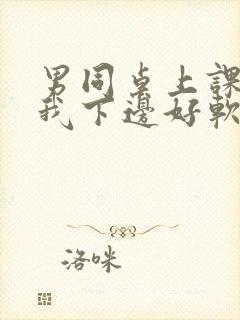 男同桌上課
我下邊好軟
洛咪